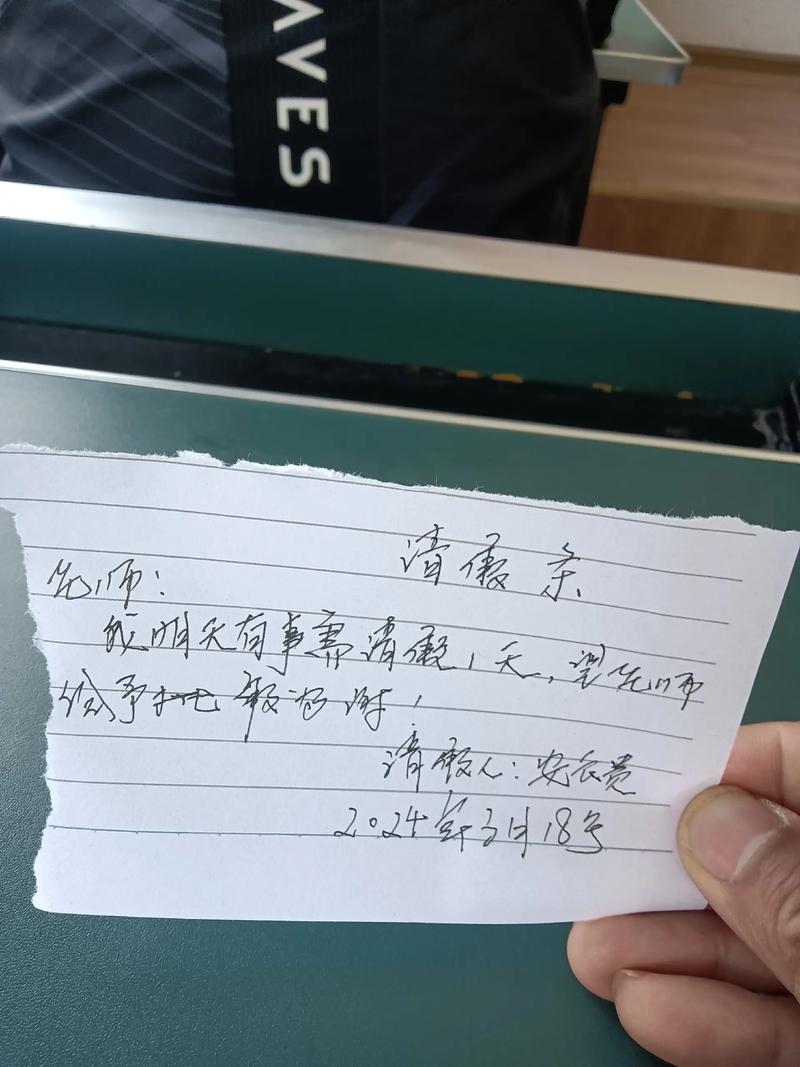 AVES
请假条
老师:
我明天有事需请假1天,望老师
给予批 假为谢!
请假人:安长贵
2024年3月18号